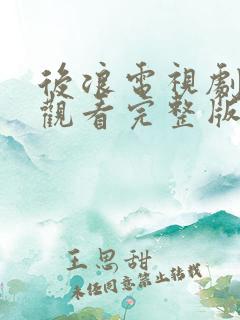 後浪電視劇
觀看完整版
王思甜
未經同意禁止轉載